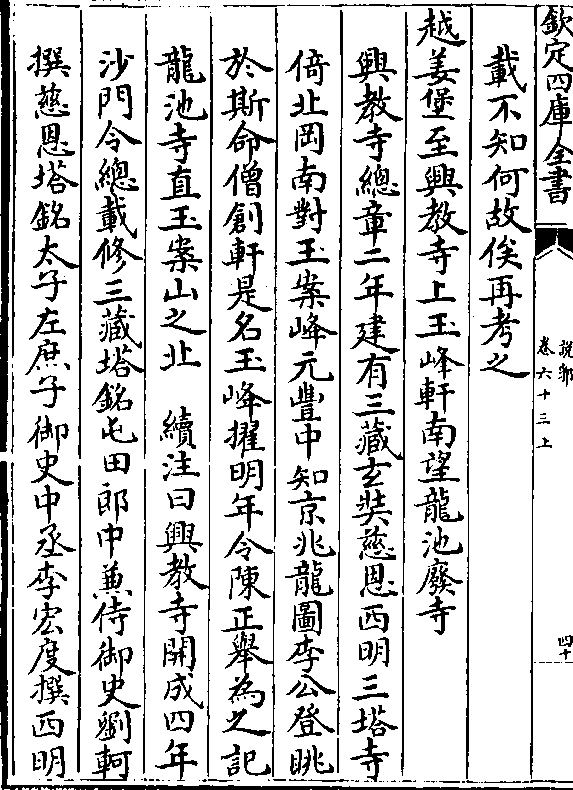 欽定四庫全書
說郛
卷六十三上
四十
載不知何故俟再考之
越姜堡至興教寺上玉峰軒南望龍池廢寺
興教寺總章二年建有三藏玄奘慈恩西明三塔寺
倚北岡南對玉案峰元豐中知京兆龍圖李公登眺
於斯命僧創軒是名玉峰擢明年令陳正舉為之記
龍池寺直玉案山之北　續注曰興教寺開成四年
沙門令總載修三藏塔銘屯田郎中兼侍御史劉軻
撰慈恩塔銘太子左庶子御史中丞李宏度撰西明